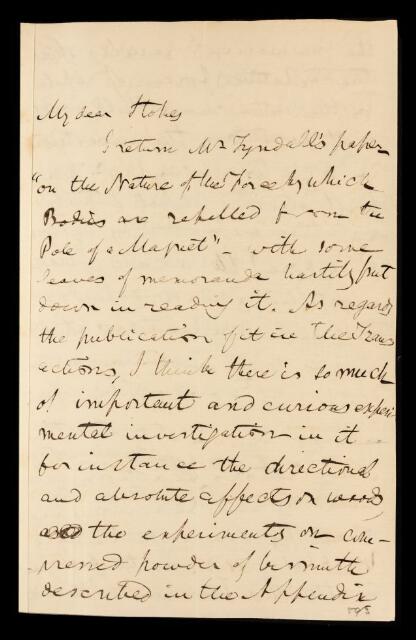 My dear Stokes
I return Mr Tyndall's paper
"on the Nature of the Force by which
Bodies are repelled from the
Pole of a Magnet" - with some
leaves of memoranda hastily put
down in reading it. As regards
the publication of it in the Trans
actions, I think there is so much
of important and curious experi-
mental investigation in it
for instance the directional
and absolute effects on wood,
and the experiments on com-
pressed powder of bismuth
described in the Appendix